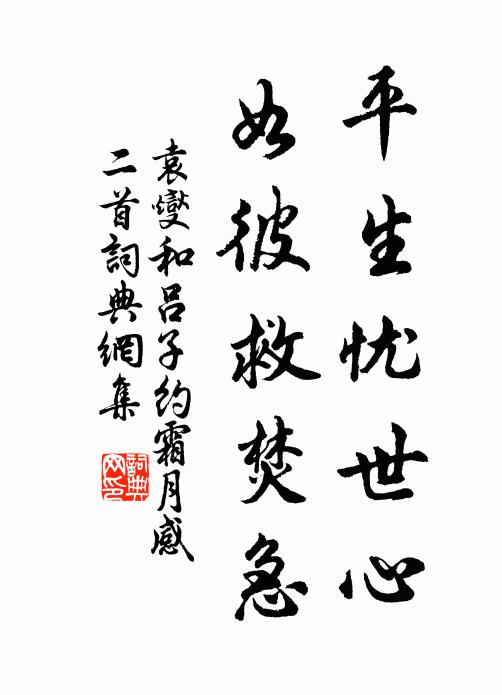 平生忧世心
如彼救焚急
袁燮和吕子約霜月感
二首詞典網集
詞典
网印